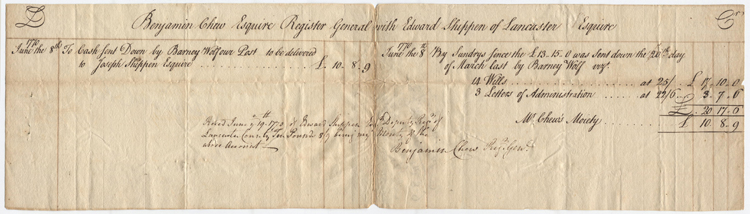 Dr Benjamin Chew Esquire Register General with Edward Shippen of Lancaster Esquire Cr
1770
June the 8th To Cash sent Down by Barney Wolf our Post to be delivered
to Joseph Shippen Esquire £ 10 - 8 - 9
1770
June the 8th By Sundrys since the £13.15.0 was sent down the 20th day
of March last by Barney Wolf viz.
14 Wills at 25/ £ 17 . 10 . 0
3 Letters of Administration at 22/6 3 . 7 . 6
£ 20 . 17 . 6
Mr. Chew's Moiety £ 10 . 8 . 9
Recd June 19th 1770 of Edward Shippen Esqr. Deputy Regr. of
Lancaster County Ten Pounds 8/9 being my Moiety of the
above Account
Benjamin Chew Reg. Genl.